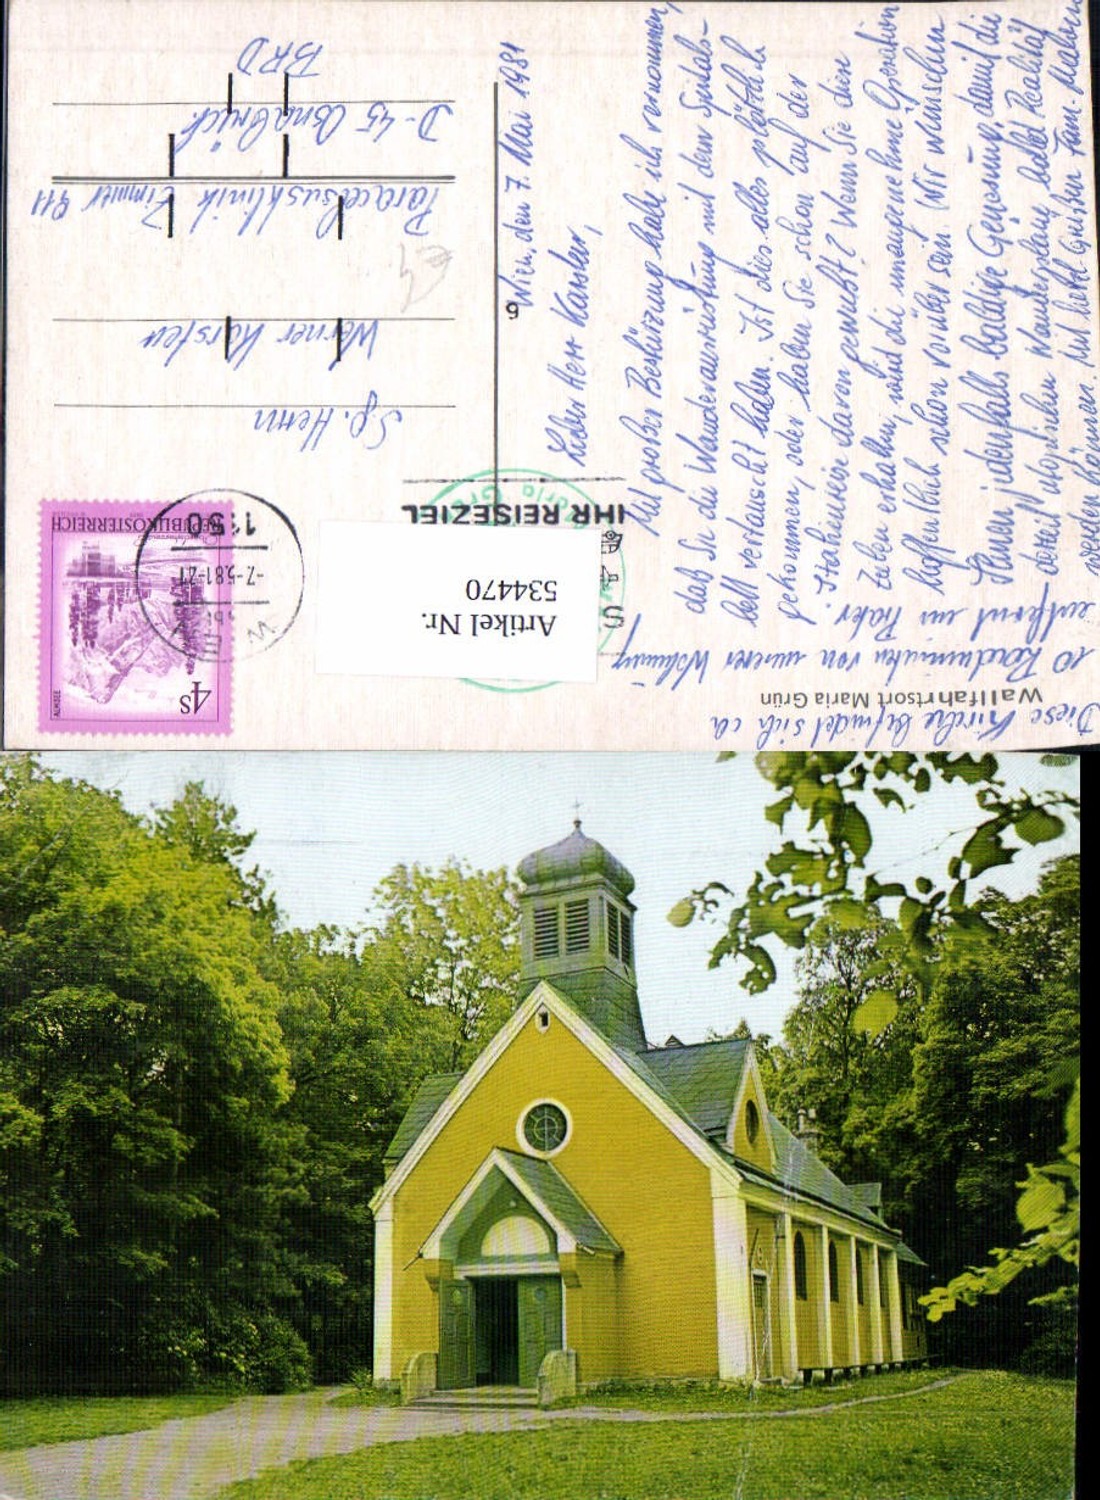 Wallfahrtsort Maria Grün
Diese Kirche befindet sich ca
10 Radminuten von unserer Wohnung
entfernt im Prater
Wien, den 7. Mai 1981
Lieber Herr Karsten,
Mit großer Bestürzung habe ich vernommen,
daß Sie die Wanderausrüstung mit dem Spitals-
bett vertauscht haben. Ist dies alles plötzlich
gekommen, oder haben Sie schon auf der
Italienreise davon gewußt? Wenn Sie diese
Zeilen erhalten, wird die unangenehme Operation
hoffentlich schon vorüber sein. Wir wünschen
Ihnen jedenfalls baldige Genesung, damit die
utopischen Wanderpläne bald Realität
werden können. Mit herzl. Grüßen Fam.
6
IHR REISEZIEL
Artikel Nr.
534470
REPUBLIK ÖSTERREICH
4S
ALMSEE
1150
-7.-5.81-21
WIEN
Sg. Herrn
Werner Karsten
Paracelsusklinik Zimmer 911
D-45 Osnabrück
BRD